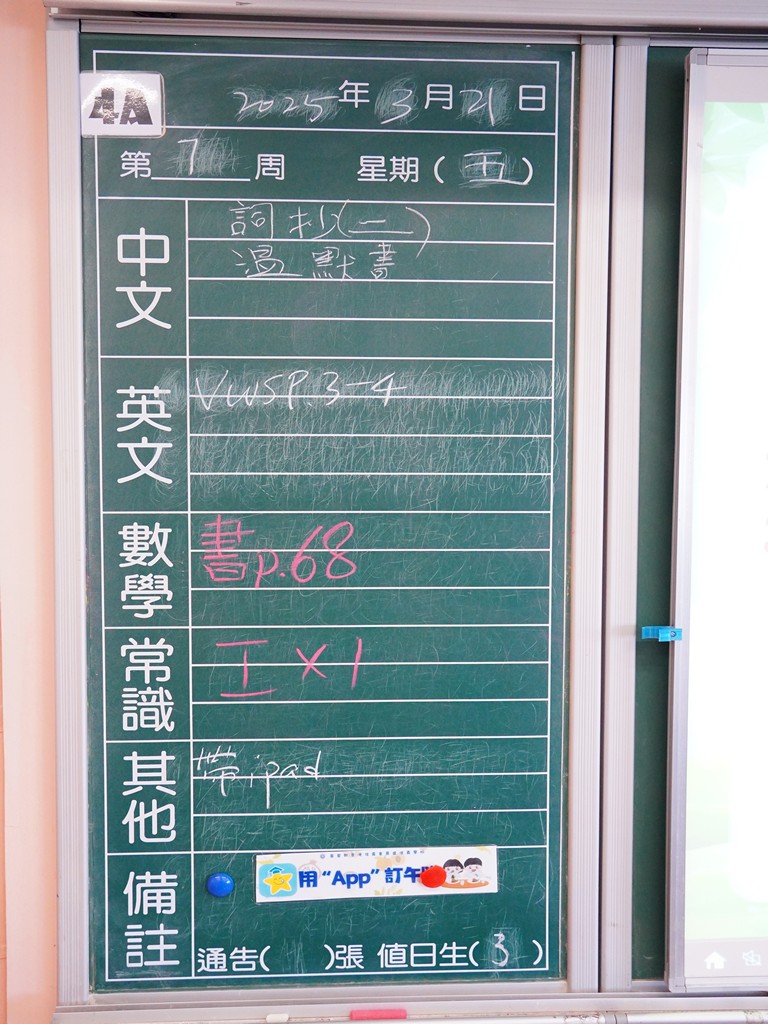 4A
2025年3月21日
第7周 星期(五)
中文
詞抄(二)
溫默書
英文
VWSP.3-4
數學
書p.68
常識
工×1
其他
帶ipad
備註
用“App”訂午
通告( )張 值日生(3)